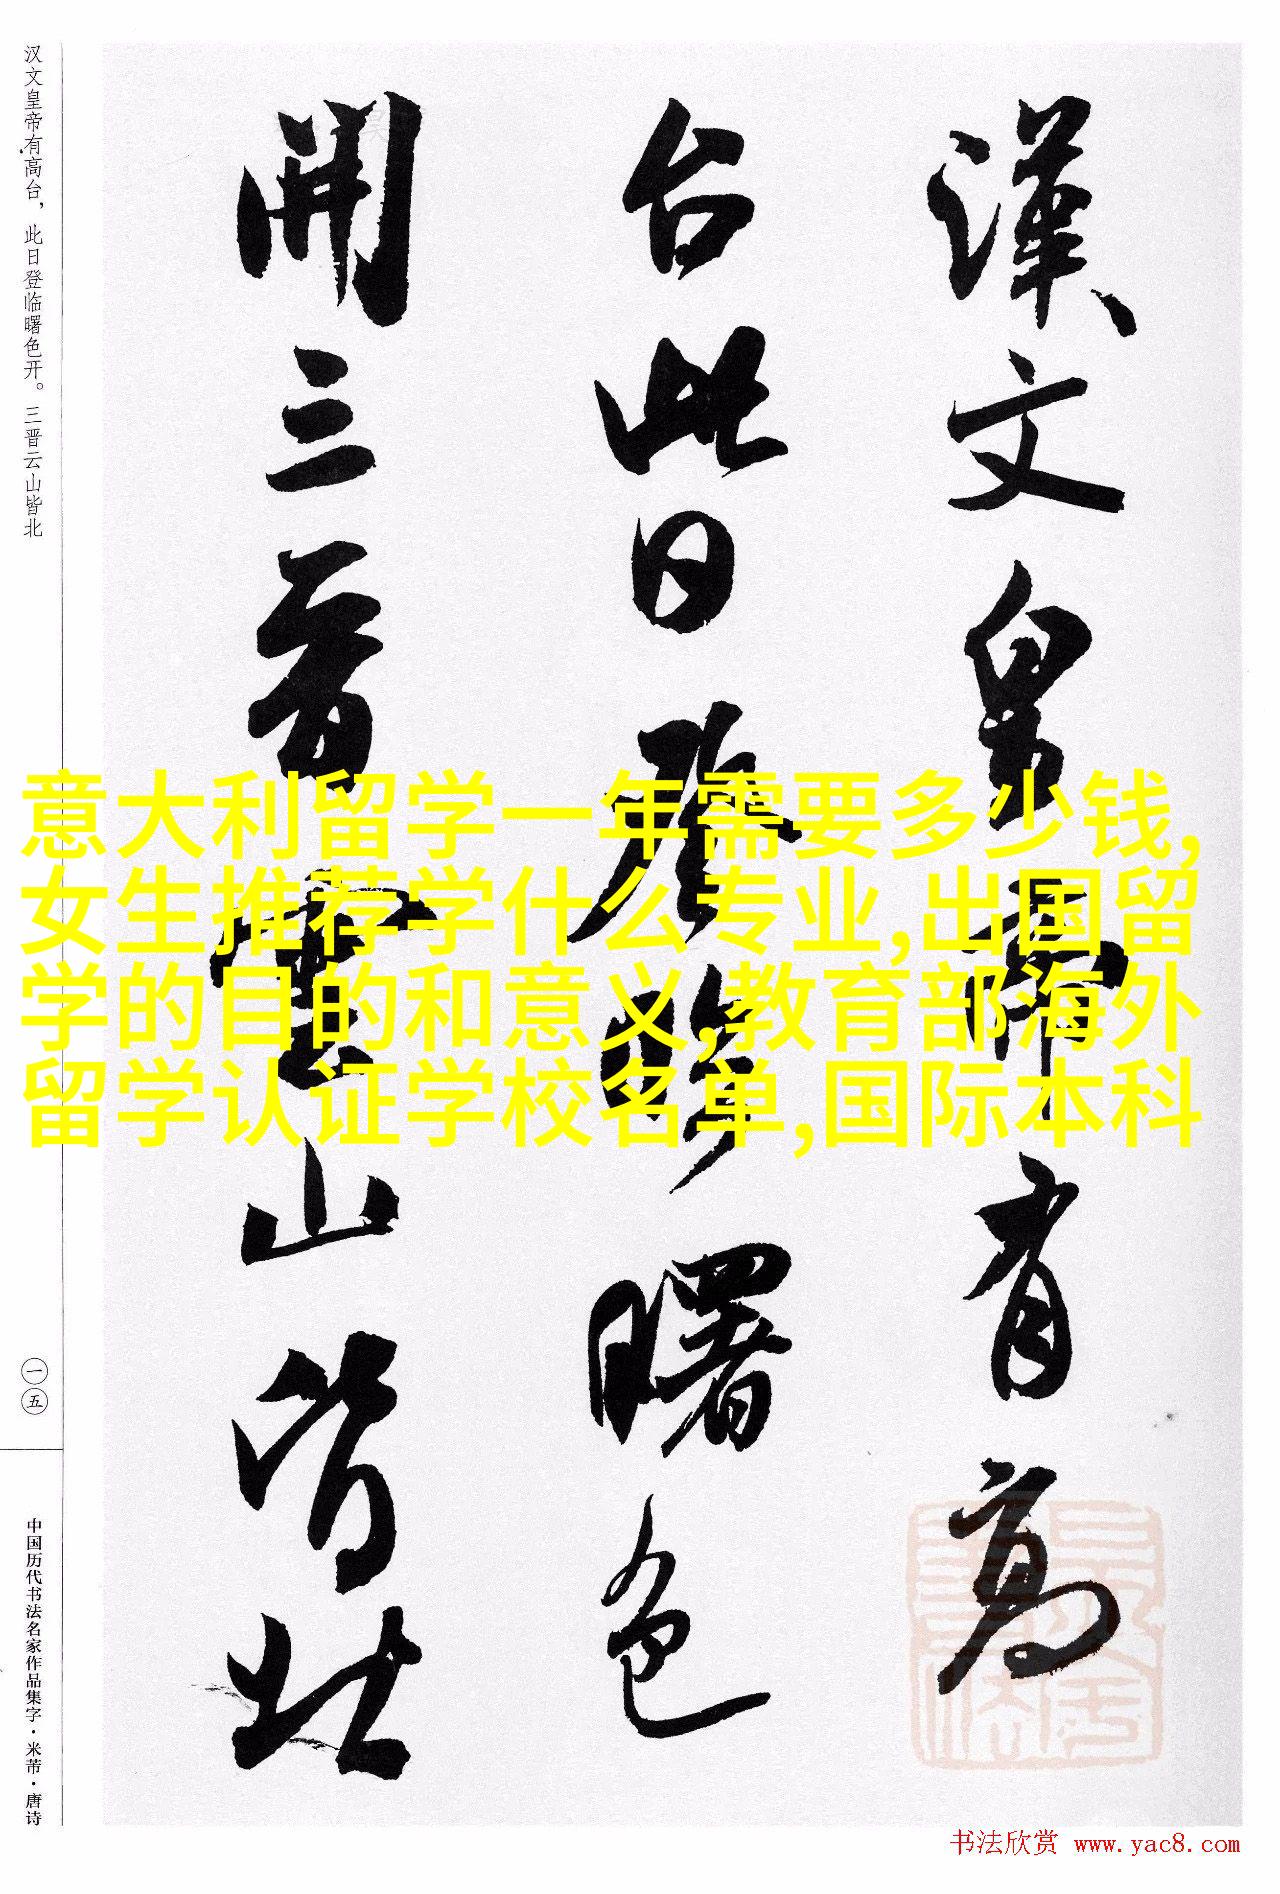 漢文皇帝有高
台此日登臨曙色
開三晉雲山皆北
汉文皇帝有高台，此日登临曙色开。三晋云山皆北
一五
中国历代书法名家作品集字·米芾·唐诗
意大利留学一年需要多少钱,
女生推荐学什么专业,出国留
学的目的和意义,教育部海外
留学认证学校名单,国际本科
书法欣赏 www.yac8.com